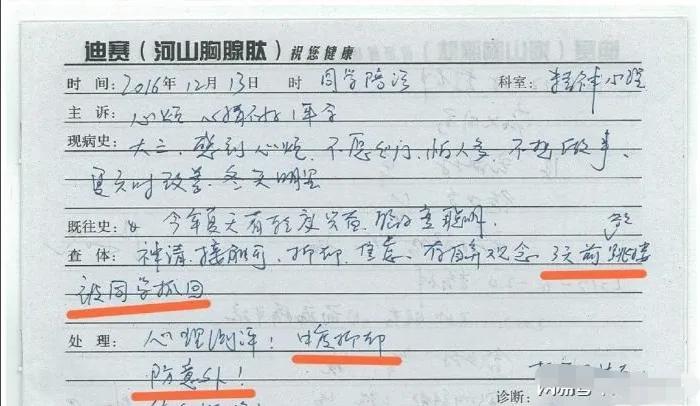 迪赛（河山胸腺肽）祝您健康
时间：2016年12月13日 时 同学陪诊 科室：精神心理
主诉：心烦 心情不好1年多
现病史：大三、感到心烦、不愿出门、怕人多、不想做事、
夏天时改善、冬天明显
既往史：今年夏天有轻度兴奋、
查体：神清、接触可、抑郁、焦虑、有自弃观念、3天前跳楼
被同学抓回
处理：心理测评：中度抑郁
防意外！
诊断：